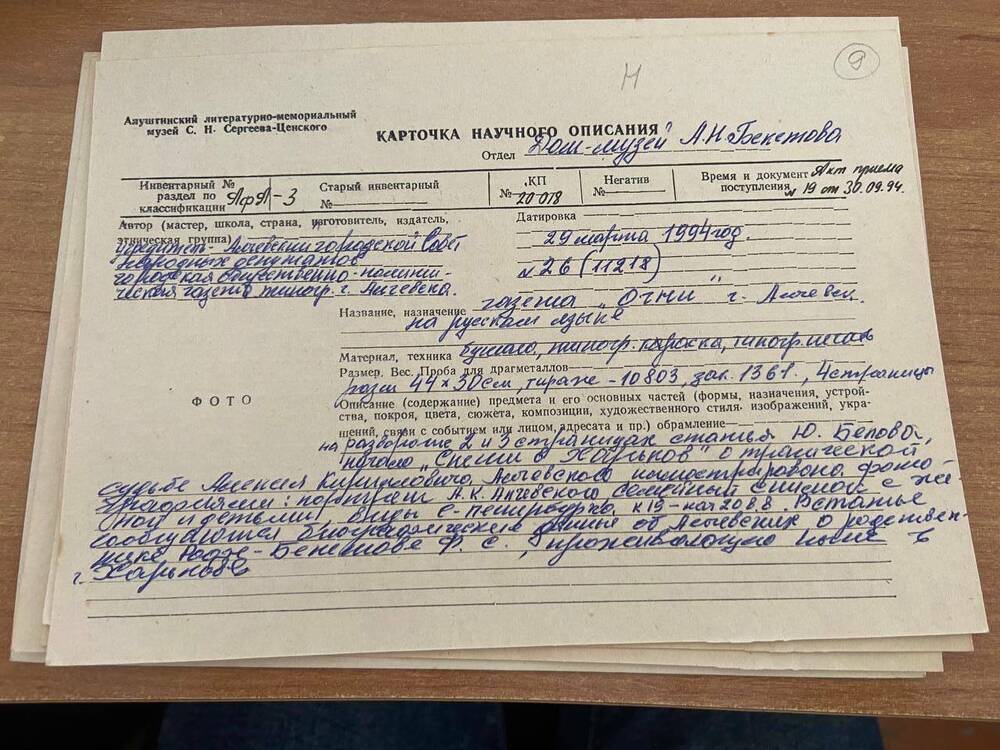 Н
9
Алуштинский литературно-мемориальный
музей С. Н. Сергеева-Ценского
КАРТОЧКА НАУЧНОГО ОПИСАНИЯ
Отдел "Дом-музей А.Н. Бекетова
Инвентарный №
раздел по
классификации АфА-3
Старый инвентарный
№
КП
№ 20 018
Негатив
№
Время и документ Акт приема
поступления № 19 от 30.09.94.
Автор (мастер, школа, страна, изготовитель, издатель,
этническая группа)
учредитель - Алчевский городской Совет
народных депутатов
городская общественно-полити-
ческая газета типогр. г. Алчевска.
Датировка
29 марта 1994 год.
№ 26 (11218)
Название, назначение газета „Огни" г. Алчевск.
на русском языке
Материал, техника бумага, типогр. краска, типогр. печать
Размер. Вес. Проба для драгметаллов
разм 44×30 см, тираж - 10803, зак. 1361., 4 страницы
ФОТО
Описание (содержание) предмета и его основных частей (формы, назначения, устрой-
ства, покроя, цвета, сюжета, композиции, художественного стиля, изображений, укра-
шений, связи с событием или лицом, адресата и пр.) обрамление
на развороте 2 и 3 страницах статья Ю. Белова,
начало „Спеши в Харьков" о трагической
судьбе Алексея Кирилловича Алчевского иллюстрирована фото-
графиями: портрет А.К. Алчевского, семейный снимок с же-
ной и детьми, виды С-Петербурга, к 19 - нач 20 в в. В статье
сообщаются биографические данные об Алчевских, о родствен-
нике - Бенешове Ф. С., проживающего ныне в
г. Харькове